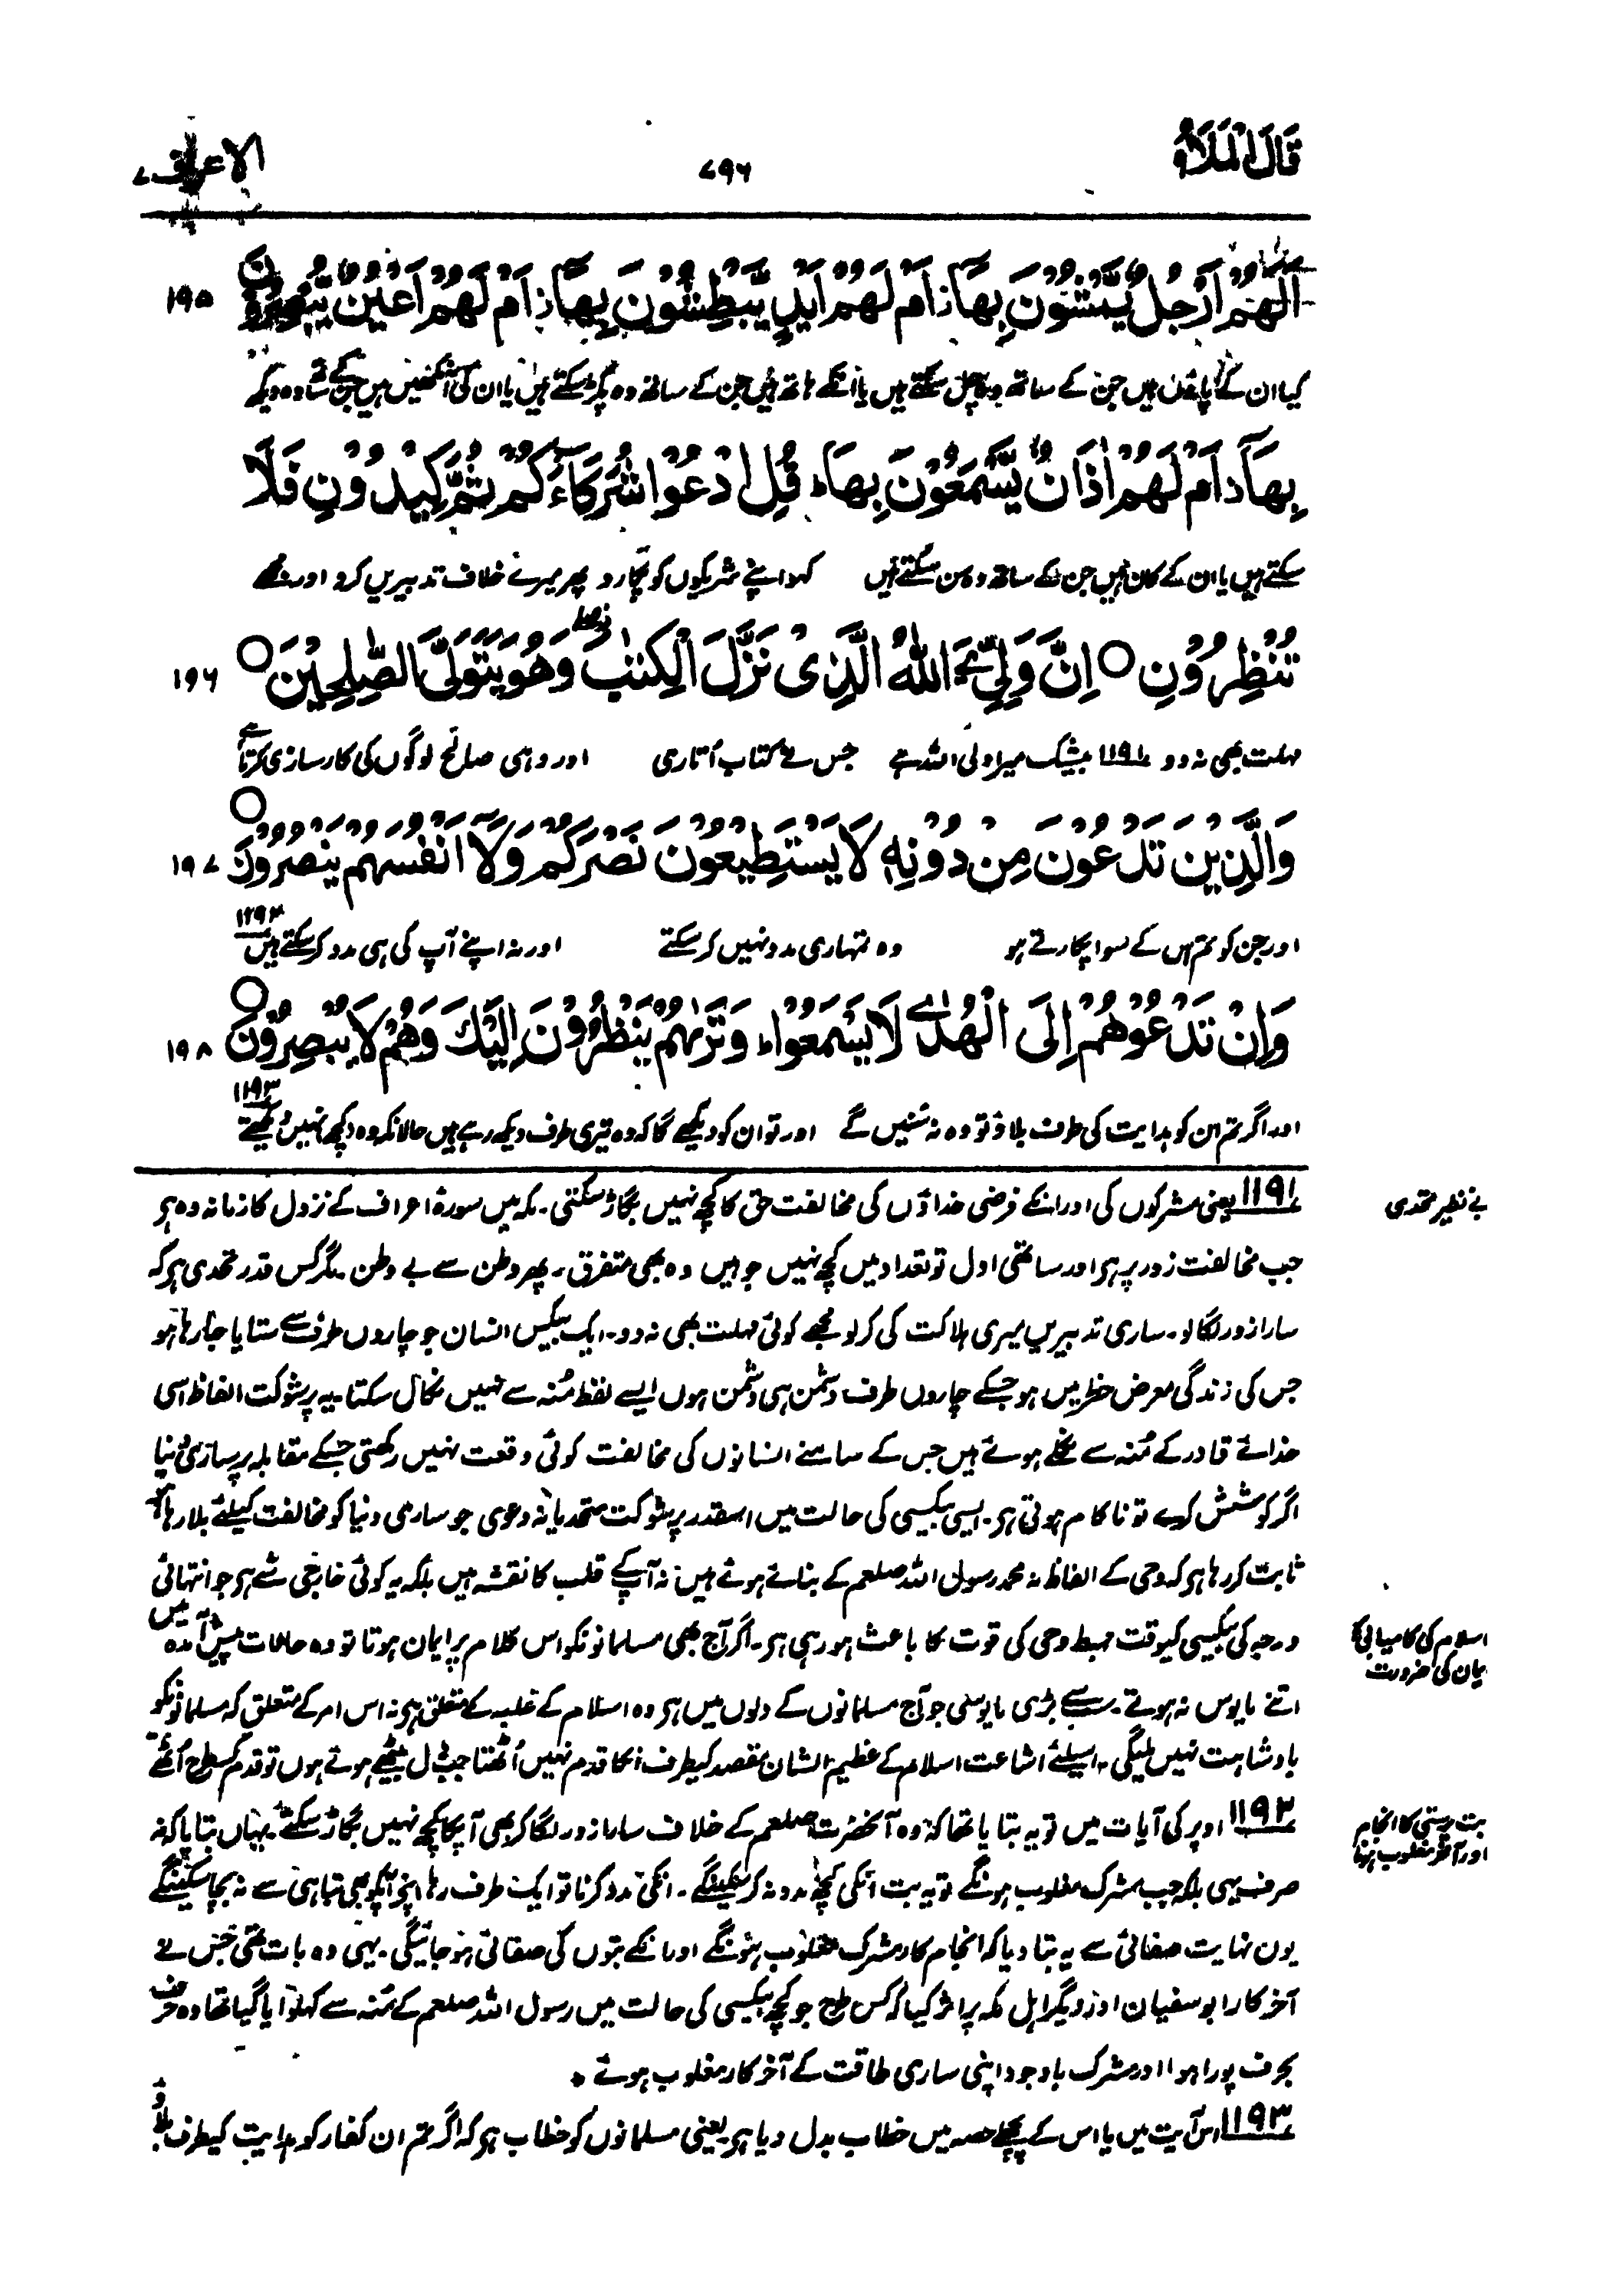 قَالَ الْمَلَاُ ۹
۷۹۶
الاعراف ۷
اَلَهُمْ اَرْجُلٌ يَّمْشُوْنَ بِهَاۤ ز اَمْ لَهُمْ اَيْدٍ يَّبْطِشُوْنَ بِهَاۤ ز اَمْ لَهُمْ اَعْيُنٌ يُّبْصِرُوْنَ ۱۹۵
کیا ان کے پاؤں ہیں جن کے ساتھ وہ چل سکتے ہیں یا انکے ہاتھ ہیں جن کے ساتھ وہ پکڑ سکتے ہیں یا ان کی آنکھیں ہیں جنکے ساتھ وہ دیکھ
بِهَاۤ ز اَمْ لَهُمْ اٰذَانٌ يَّسْمَعُوْنَ بِهَا ط قُلِ ادْعُوْا شُرَكَآءَكُمْ ثُمَّ كِيْدُوْنِ فَلَا
سکتے ہیں یا ان کے کان ہیں جن کے ساتھ وہ سن سکتے ہیں کہو اپنے شریکوں کو پکارو پھر میرے خلاف تدبیریں کرو اور مجھے
تُنْظِرُوْنِ ○ اِنَّ وَلِيِّ ۧ اللّٰهُ الَّذِيْ نَزَّلَ الْكِتٰبَ ۖ وَهُوَ يَتَوَلَّى الصّٰلِحِيْنَ ○ ۱۹۶
مہلت بھی نہ دو ۱۱۹۱ بیشک میرا ولی اللہ ہے جس نے کتاب اُتاری اور وہی صالح لوگوں کی کارسازی کرتا ہے
وَالَّذِيْنَ تَدْعُوْنَ مِنْ دُوْنِهٖ لَا يَسْتَطِيْعُوْنَ نَصْرَكُمْ وَلَاۤ اَنْفُسَهُمْ يَنْصُرُوْنَ ○ ۱۹۷
اور جن کو تم اس کے سوا پکارتے ہو وہ تمہاری مدد نہیں کر سکتے اور نہ اپنے آپ کی ہی مدد کر سکتے ہیں ۱۱۹۲
وَاِنْ تَدْعُوْهُمْ اِلَى الْهُدٰى لَا يَسْمَعُوْا ط وَتَرٰىهُمْ يَنْظُرُوْنَ اِلَيْكَ وَهُمْ لَا يُبْصِرُوْنَ ○ ۱۹۸
اور اگر تم ان کو ہدایت کی طرف بلاؤ تو وہ نہ سُنیں گے اور تو ان کو دیکھے گا کہ وہ تیری طرف دیکھ رہے ہیں حالانکہ وہ کچھ نہیں دیکھتے ۱۱۹۳
۱۱۹۱ یعنی مشرکوں کی اور انکے فرضی خداؤں کی مخالفت حق کا کچھ نہیں بگاڑ سکتی۔ مکہ میں سورۃ اعراف کے نزول کا زمانہ وہ ہر
بے نظیر تحدی
جب مخالفت زور پر ہر اور ساتھی اول تو تعداد میں کچھ نہیں جو ہیں وہ بھی متفرق۔ پھر وطن سے بے وطن۔ مگر کس قدر تحدی ہر کہ
سارا زور لگا لو۔ ساری تدبیریں میری ہلاکت کی کر لو مجھے کوئی مہلت بھی نہ دو۔ ایک بیکس انسان جو چاروں طرف سے ستایا جا رہا ہو
جس کی زندگی معرض خطر میں ہو جسکے چاروں طرف دشمن ہی دشمن ہوں ایسے لفظ مُنہ سے نہیں نکال سکتا یہ پر شوکت الفاظ اسی
خدائے قادر کے مُنہ سے نکلے ہوئے ہیں جس کے سامنے انسانوں کی مخالفت کوئی وقعت نہیں رکھتی جسکے مقابلہ پر ساری دنیا
اگر کوشش کرے تو ناکام ہوتی ہر۔ ایسی بیکسی کی حالت میں اسقدر پر شوکت متحدیانہ دعوی جو ساری دنیا کو مخالفت کیلئے بلا رہا ہے
ثابت کر رہا ہر کہ وحی کے الفاظ نہ محمد رسول اللہ صلعم کے بنائے ہوئے ہیں نہ آپ کے قلب کا نقشہ ہیں بلکہ یہ کوئی خارجی شے ہر جو انتہائی
درجہ کی بیکسی کیوقت مہبط وحی کی قوت کا باعث ہو رہی ہر۔ اگر آج بھی مسلمانوں کو اس کلام پر ایمان ہوتا تو وہ حالات پیش آمدہ میں
اسلام کی کامیابی پر
ایمان کی ضرورت
اتنے مایوس نہ ہوتے۔ سب سے بڑی مایوسی جو آج مسلمانوں کے دلوں میں ہر وہ اسلام کے غلبہ کے متعلق ہر نہ اس امر کے متعلق کہ مسلمانوں کو
بادشاہت نہیں ملیگی۔ اسیلئے اشاعت اسلام کے عظیم الشان مقصد کیطرف انکا قدم نہیں اُٹھتا جب دل بیٹھے ہوئے ہوں تو قدم کسطرح اُٹھے
۱۱۹۲ اوپر کی آیات میں تو یہ بتایا تھا کہ وہ آنحضرت صلعم کے خلاف سارا زور لگا کر بھی آپکا کچھ نہیں بگاڑ سکتے۔ یہاں بتایا کہ نہ
بت پرستی کا انجام
اور آخر مغلوب ہونا
صرف یہی بلکہ جب مشرک مغلوب ہونگے تو یہ بت انکی کچھ مدد نہ کر سکینگے۔ انکی مدد کرنا تو ایک طرف رہا اپنے آپکو بھی تباہی سے نہ بچا سکینگے
یوں نہایت صفائی سے یہ بتا دیا کہ انجام کار مشرک مغلوب ہونگے اور انکے بتوں کی صفائی ہو جائیگی۔ یہی وہ بات تھی جس نے
آخر کار ابو سفیان اور دیگر اہل مکہ پر اثر کیا کہ کس طرح جو کچھ بیکسی کی حالت میں رسول اللہ صلعم کے مُنہ سے کہلوایا گیا تھا وہ حرف
بحرف پورا ہوا اور مشرک باوجود اپنی ساری طاقت کے آخر کار مغلوب ہوئے ٭
۱۱۹۳ اس آیت میں یا اس کے پچھلے حصہ میں خطاب بدل دیا ہر یعنی مسلمانوں کو خطاب ہر کہ اگر تم ان کفار کو ہدایت کیطرف بلاؤ